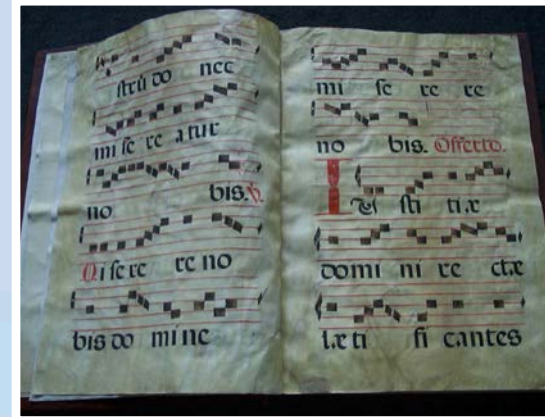 strū do nec
mi se re a tur
no bis. ℣.
Mi se re re no
bis do mi ne
mi se re re
no bis. Offerto.
I U sti ti æ
domi ni re ctæ
læ ti fi cantes